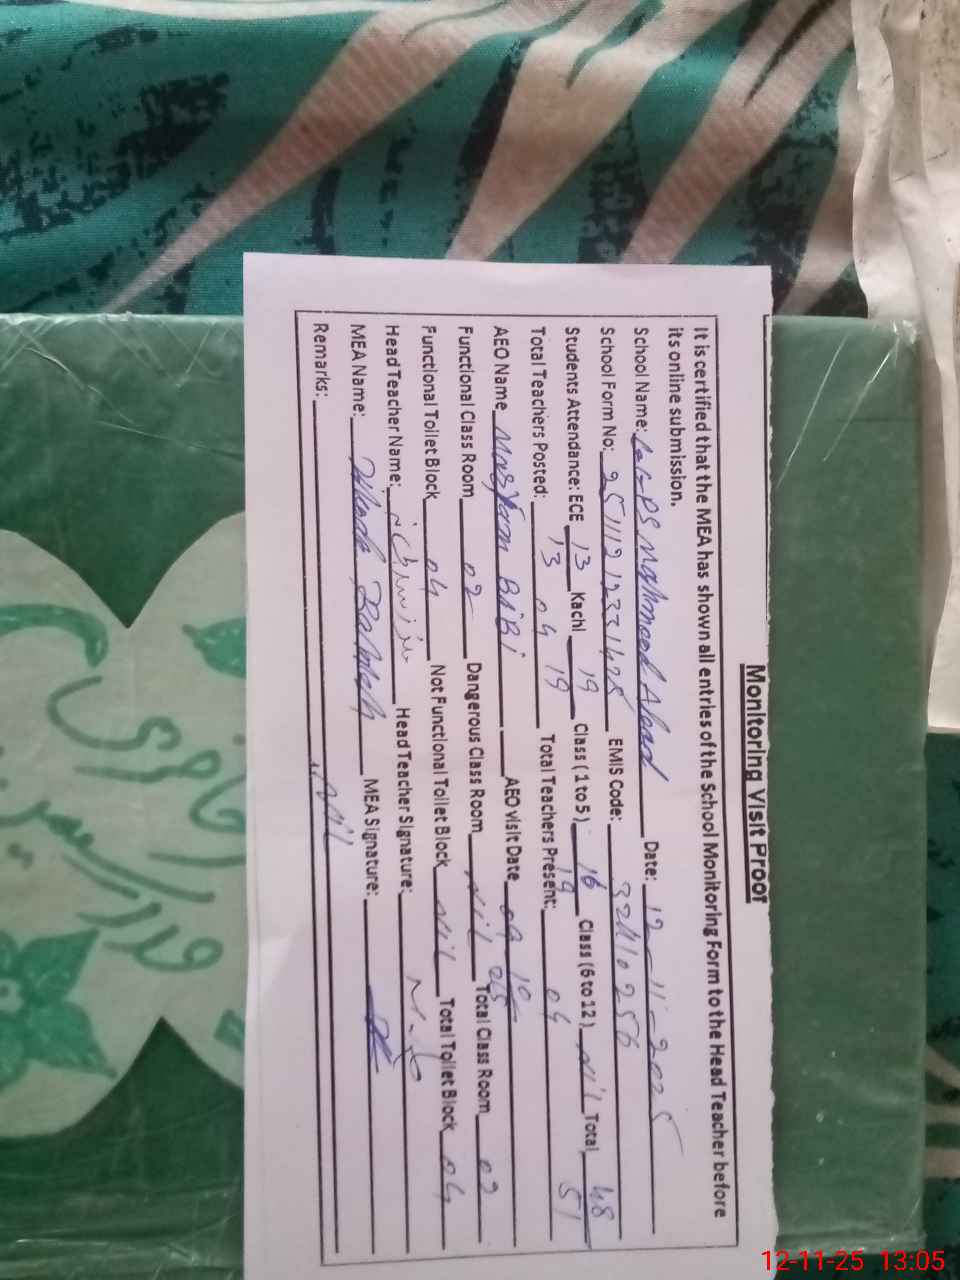 Monitoring Visit Proof
It is certified that the MEA has shown all entries of the School Monitoring Form to the Head Teacher before
its online submission.
School Name: PS Mahmood Abad Date: 12-11-2025
School Form No: EMIS Code: 32110256
Students Attendance: ECE 13 Kachi 19 Class (1 to 5) 16 Class (6 to 12) Nil Total 48
13 19 19 51
Total Teachers Posted: 04 Total Teachers Present: 04
AEO Name BiBi AEO visit Date 09 10
Functional Class Room 02 Dangerous Class Room Nil Total Class Room 02
Functional Toilet Block 04 Not Functional Toilet Block Nil Total Toilet Block 04
Head Teacher Name: Head Teacher Signature:
MEA Name: MEA Signature:
Remarks: Nil
12-11-25 13:05